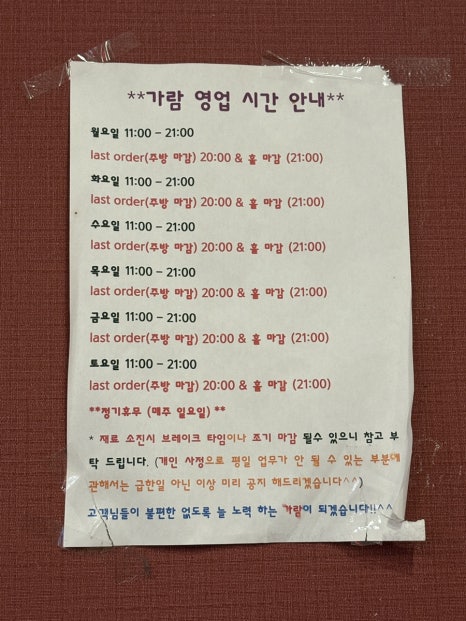 **가람 영업 시간 안내**
월요일 11:00 – 21:00
last order(주방 마감) 20:00 & 홀 마감 (21:00)
화요일 11:00 – 21:00
last order(주방 마감) 20:00 & 홀 마감 (21:00)
수요일 11:00 – 21:00
last order(주방 마감) 20:00 & 홀 마감 (21:00)
목요일 11:00 – 21:00
last order(주방 마감) 20:00 & 홀 마감 (21:00)
금요일 11:00 – 21:00
last order(주방 마감) 20:00 & 홀 마감 (21:00)
토요일 11:00 – 21:00
last order(주방 마감) 20:00 & 홀 마감 (21:00)
**정기휴무 (매주 일요일) **
* 재료 소진시 브레이크 타임이나 조기 마감 될수 있으니 참고 부
탁 드립니다. (개인 사정으로 평일 업무가 안 될 수 있는 부분에
관해서는 급한일 아닌 이상 미리 공지 해드리겠습니다^^)
고객님들이 불편한 없도록 늘 노력 하는 가람이 되겠습니다!!^^